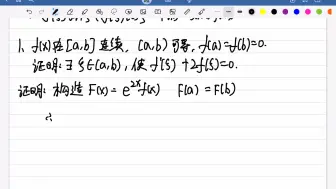 1. f(x)在[a,b]连续, (a,b)可导, f(a)=f(b)=0.
证明: ∃ξ∈(a,b), 使f'(ξ)+2f(ξ)=0.
证明: 构造 F(x)= e^{2x}f(x)  F(a)=F(b)